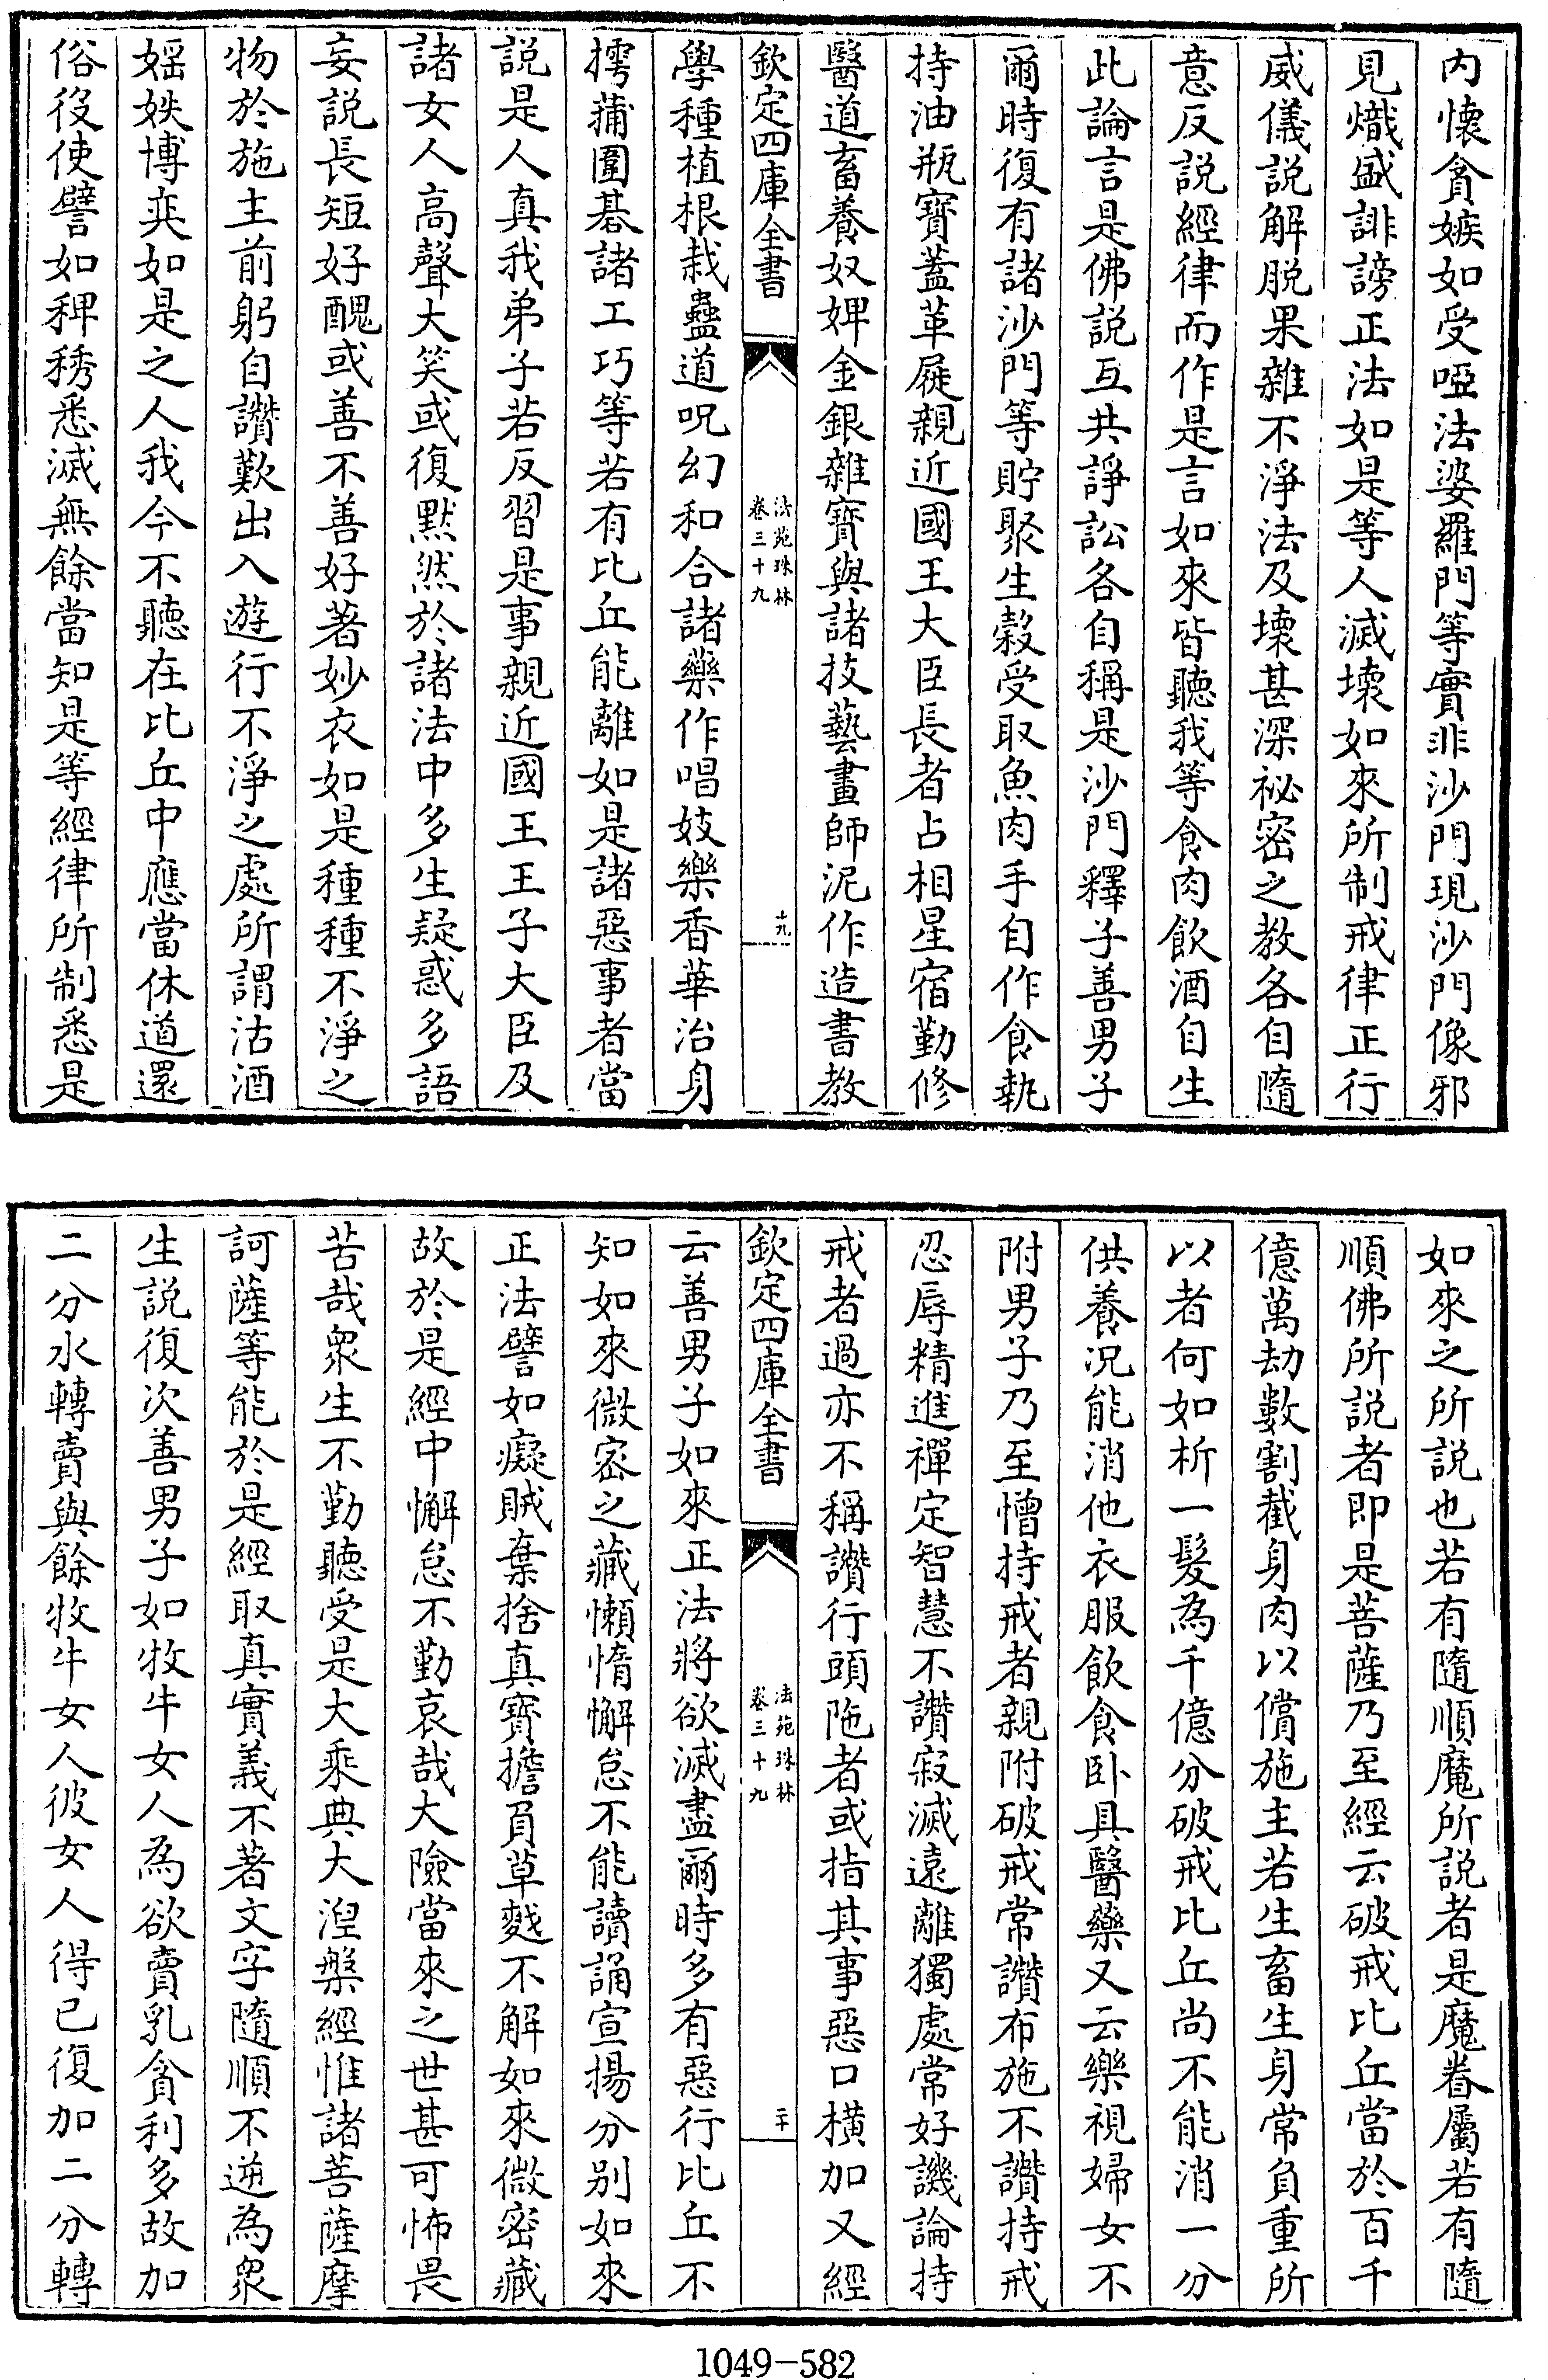 内懷貪嫉如受啞法婆羅門等實非沙門現沙門像邪
見熾盛誹謗正法如是等人滅壞如來所制戒律正行
威儀説解脱果雜不淨法及壞甚深祕密之教各自隨
意反説經律而作是言如來皆聽我等食肉飲酒自生
此論言是佛説互共諍訟各自稱是沙門釋子善男子
爾時復有諸沙門等貯聚生穀受取魚肉手自作食執
持油瓶寶蓋革屣親近國王大臣長者占相星宿勤修
醫道畜養奴婢金銀雜寶與諸技藝畫師泥作造書教
欽定四庫全書
法苑珠林
卷三十九
十九
學種植根栽蠱道呪幻和合諸藥作唱妓樂香華治身
摴蒱圍碁諸工巧等若有比丘能離如是諸惡事者當
説是人真我弟子若反習是事親近國王王子大臣及
諸女人高聲大笑或復默然於諸法中多生疑惑多語
妄説長短好醜或善不善好著妙衣如是種種不淨之
物於施主前躬自讚歎出入遊行不淨之處所謂沽酒
婬妷博奕如是之人我今不聽在比丘中應當休道還
俗役使譬如稗稊悉滅無餘當知是等經律所制悉是
如來之所説也若有隨順魔所説者是魔眷屬若有隨
順佛所説者即是菩薩乃至經云破戒比丘當於百千
億萬劫數割截身肉以償施主若生畜生身常負重所
以者何如析一髮為千億分破戒比丘尚不能消一分
供養況能消他衣服飲食卧具醫藥又云樂視婦女不
附男子乃至憎持戒者親附破戒常讚布施不讚持戒
忍辱精進禪定智慧不讚寂滅遠離獨處常好譏論持
戒者過亦不稱讚行頭陁者或指其事惡口横加又經
欽定四庫全書
法苑珠林
卷三十九
二十
云善男子如來正法將欲滅盡爾時多有惡行比丘不
知如來微密之藏懶惰懈怠不能讀誦宣揚分别如來
正法譬如癡賊棄捨真寶擔負草䴬不解如來微密藏
故於是經中懈怠不勤哀哉大險當來之世甚可怖畏
苦哉衆生不勤聽受是大乘典大湼槃經惟諸菩薩摩
訶薩等能於是經取真實義不著文字隨順不逆為衆
生説復次善男子如牧牛女人為欲賣乳貪利多故加
二分水轉賣與餘牧牛女人彼女人得已復加二分轉
1049-582